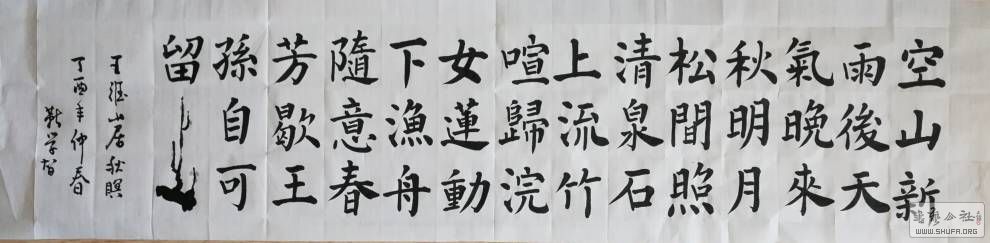 空山新
雨後天
氣晚來
秋明月
松間照
清泉石
上流竹
喧歸浣
女蓮動
下漁舟
隨意春
芳歇王
孫自可
留
王維山居秋暝
丁酉年仲春
靳学智
公社
WWW.SHUFA.ORG